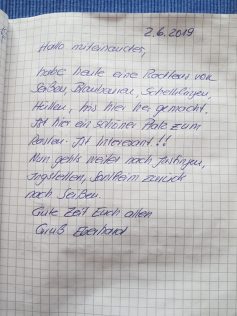 2.6.2019
Hallo miteinander,
habe heute eine Radtour von
Seißen, Blaubeuren, Schelklingen,
Hütten, bis hier her gemacht.
Ist hier ein schöner Platz zum
Rasten. Ist Interesant!!
Nun gehts weiter nach Justingen,
Ingstetten, Sontheim zurück
nach Seißen.
Gute Zeit Euch allen
Gruß Eberhard